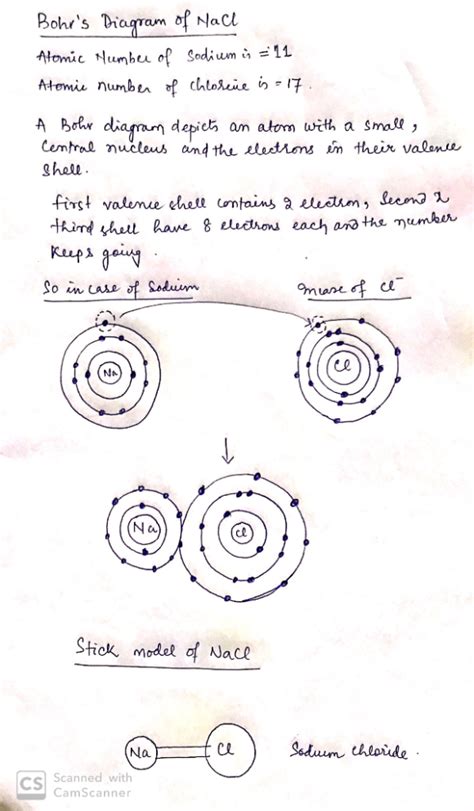 Bohr's Diagram of NaCl
Atomic Number of Sodium is = 11
Atomic number of chlorine is - 17.
A Bohr diagram depicts an atom with a small,
Central nucleus and the electrons in their valence
Shell.
first valence shell contains 2 electron, Second &
third shell have 8 electrons each and the number
Keeps going.
So in case of Sodium
incase of Cl⁻
Na
Cl
Na
Cl
Stick model of NaCl
Na
Cl
Sodium chloride.
CS
Scanned with
CamScanner